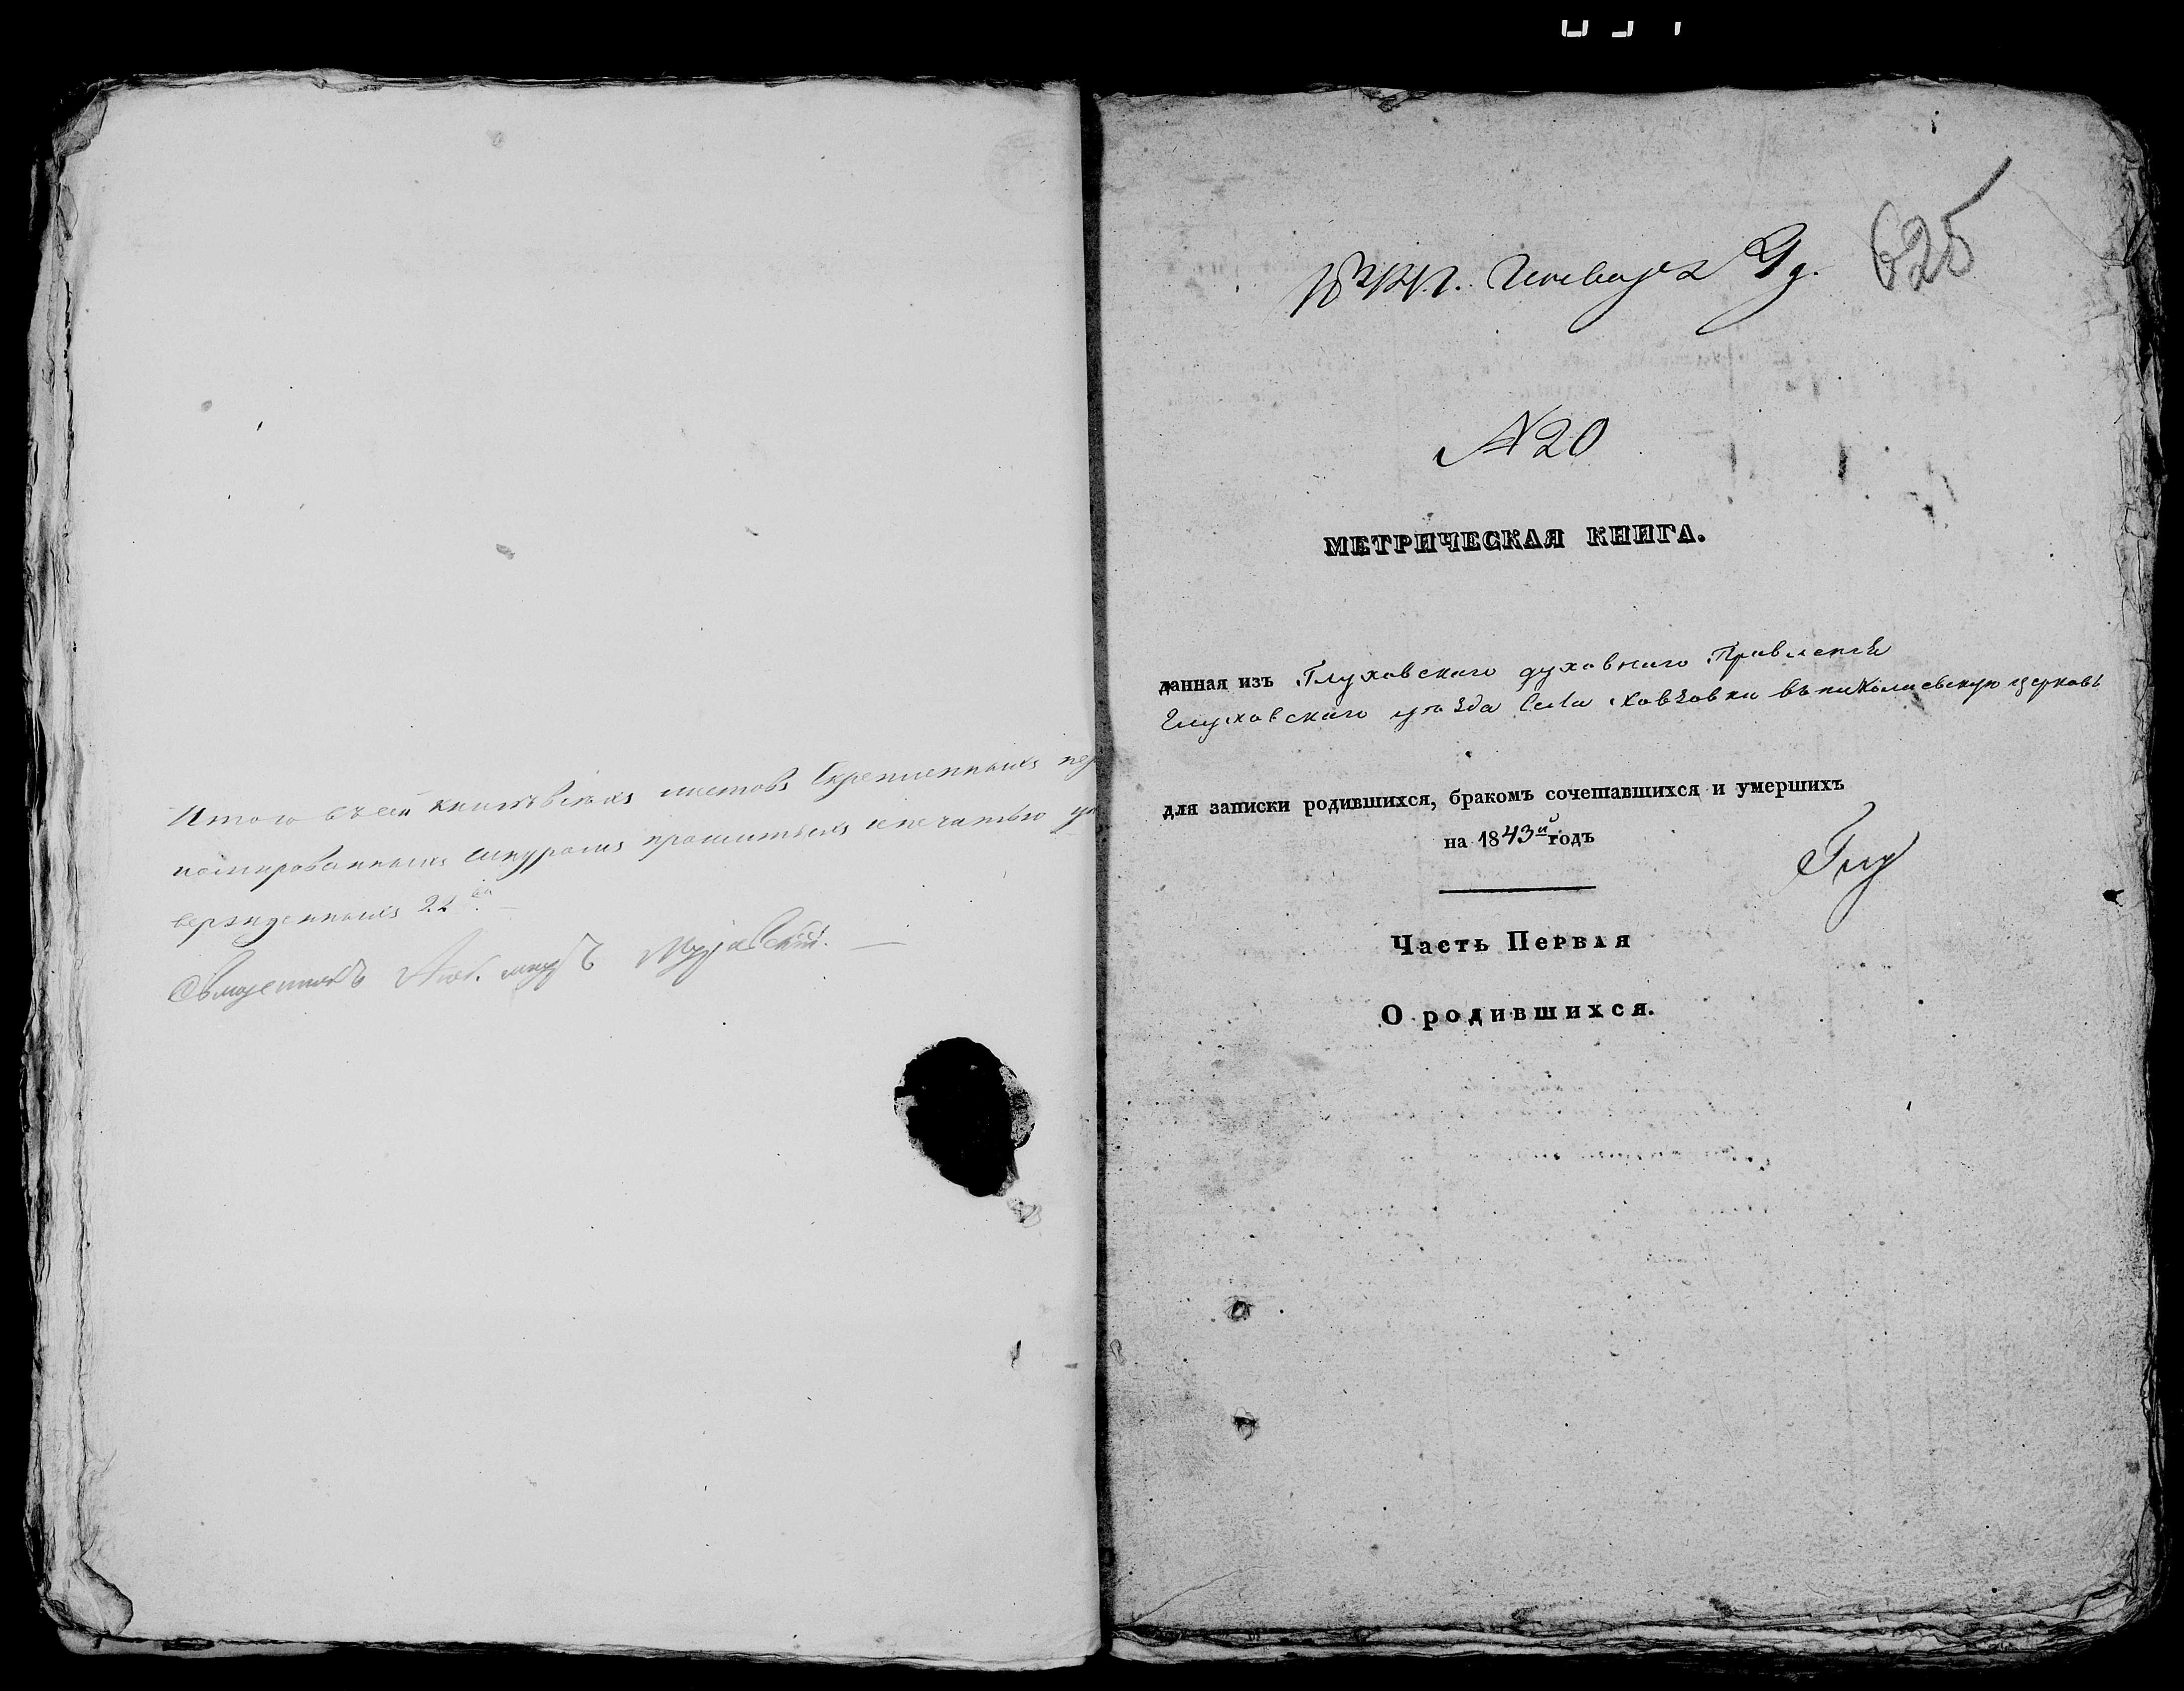 Итого въ сей книгѣ всѣхъ листовъ скрепленныхъ
номированныхъ шнуромъ прошитыхъ и печатью
вержденныхъ 22
1844. Генваря 9 д.
625
N 20
МЕТРИЧЕСКАЯ КНИГА.
данная изъ Глуховскаго духовнаго Правленія
Глуховскаго уѣзда села Ховзовки въ николаевскую церковь
для записки родившихся, бракомъ сочетавшихся и умершихъ
на 1843й годъ
Глу
Часть Первая
О родившихся.